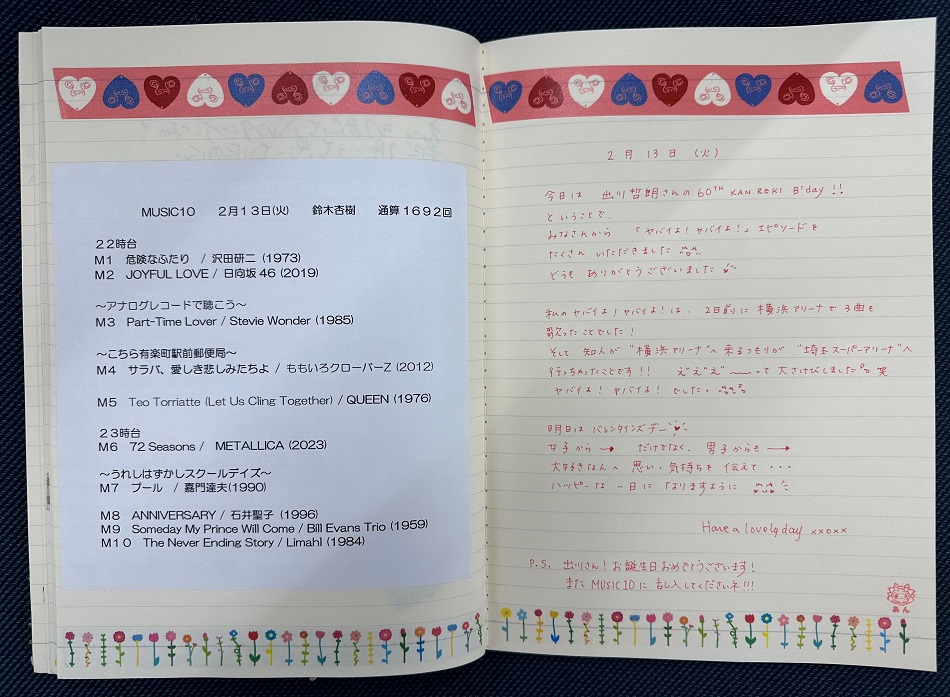 MUSIC10 2月13日(火) 鈴木杏樹 通算1692回
22時台
M1 危険なふたり / 沢田研二 (1973)
M2 JOYFUL LOVE / 日向坂46 (2019)
～アナログレコードで聴こう～
M3 Part-Time Lover / Stevie Wonder (1985)
～こちら有楽町駅前郵便局～
M4 サラバ、愛しき悲しみたちよ / ももいろクローバーZ (2012)
M5 Teo Torriatte (Let Us Cling Together) / QUEEN (1976)
23時台
M6 72 Seasons / METALLICA (2023)
～うれしはずかしスクールデイズ～
M7 プール / 嘉門達夫(1990)
M8 ANNIVERSARY / 石井聖子 (1996)
M9 Someday My Prince Will Come / Bill Evans Trio (1959)
M10 The Never Ending Story / Limahl (1984)
2月13日(火)
今日は 出川哲朗さんの 60TH KANREKI B'day!!
ということで、
みなさんから 「ヤバイよ!ヤバイよ!」エピソードを
たくさん いただきました
どうも ありがとうございました
私のヤバイよ!ヤバイよ!は、2日前に横浜アリーナで3曲も
歌ったことでした!
そして 知人が "横浜アリーナ"へ来るつもりが "埼玉スーパーアリーナ"へ
行っちゃったことです!! え"え"え"〜〜って 大さけびしました 笑
ヤバイよ! ヤバイよ! でした。
明日は バレンタインズデー
女子から → だけでなく、男子からも →
大好きな人へ 思い、気持ちを 伝えて・・・
ハッピーな 一日に なりますように
Have a lovely day xxoxx
P.S. 出川さん!お誕生日おめでとうございます!
また MUSIC10に 乱入してくださいネ!!!
あん